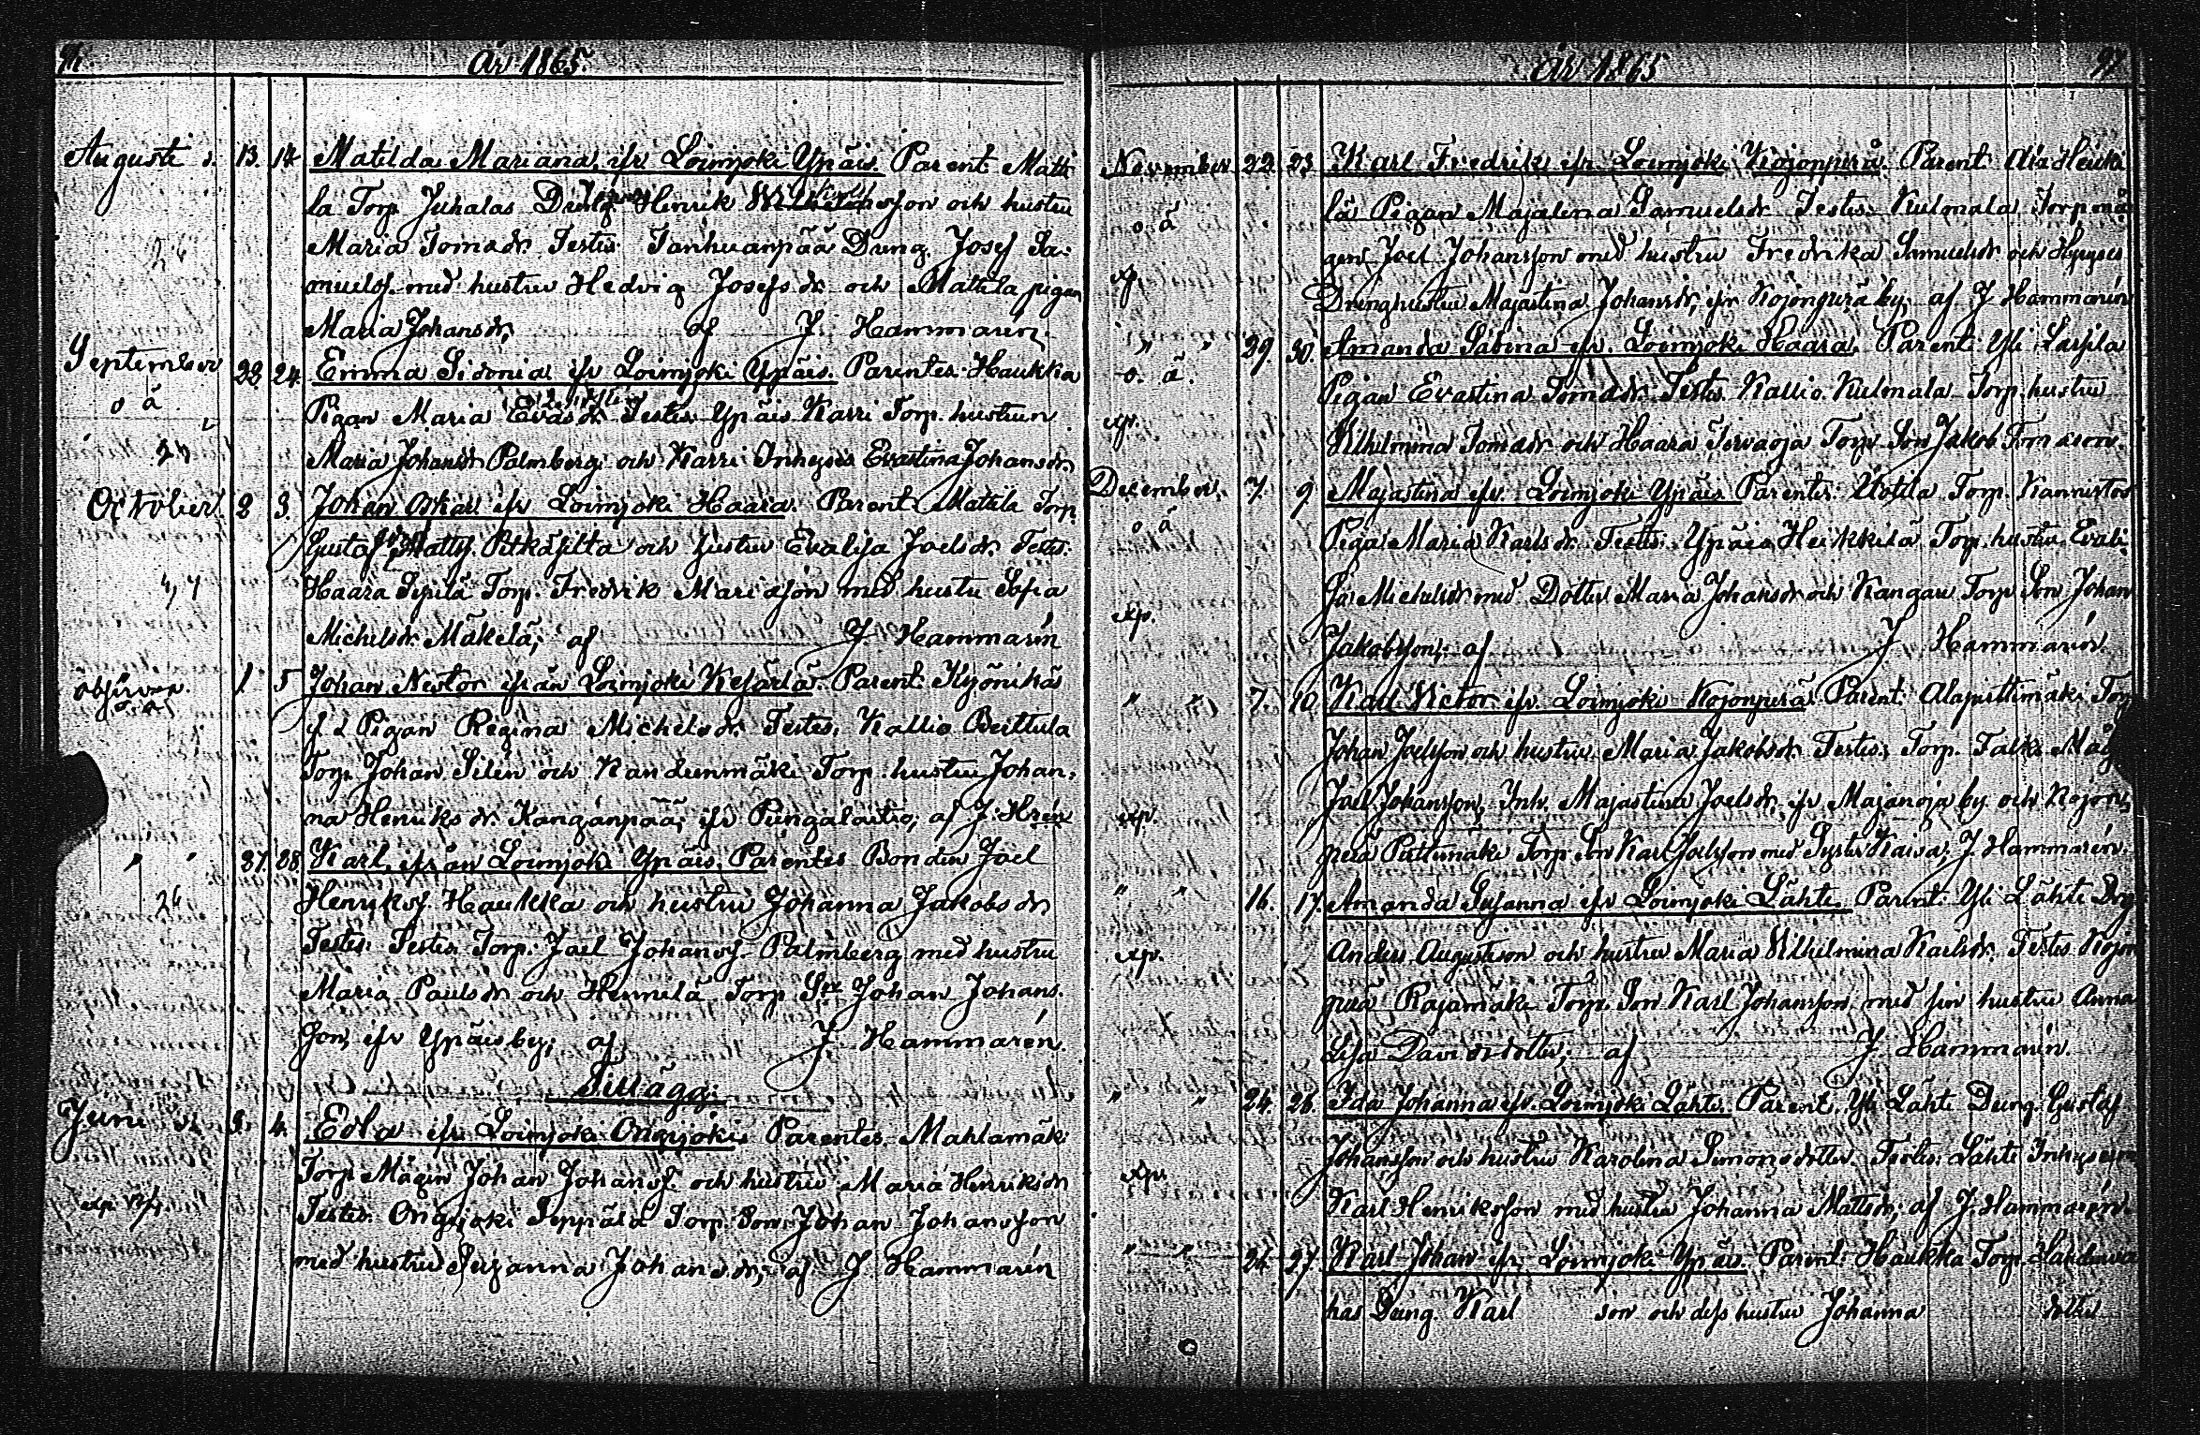 År 1865.
Augusti 13. 14. Matilda Mariana, ifr Loimjoki Ypäis. Parent Matti
la Torp Juhalas Dräng Henrik son och hustru
Maria Tomadr. Testes: Tanhuanpää Dräng Josef Sa-
muelsf. med hustru Hedvig Josefsdr. och Mattila pigan
Maria Johansdr, af J. Hammarén.
September 22. 24. Emma Sidonia ifr Loimjoki Ypäis. Parentes: Haukka
o ä
Pigan Maria Evasdr. Testes: Ypäis Karri Torp. hustrun
Maria Johansdr Palmberg och Karri Inhyses Evastina Johansdr
October 2 3. Johan Oskar ifr Loimjoki Haara. Parent. Mattila Torp.
Gustaf Mattsf. Pitkäsilta och hustru Evalisa Joelsdr. Testes:
Haara Sepilä Torp. Fredrik Mariason med hustru Sofia
Michelsdr. Mäkelä; af J. Hammarén
1 5 Johan Nestor ifrån Loimjoki Kesärlä. Parent: Kyönikä
Pigan Regina Michelsdr. Testes: Kallio Perttula
Torp. Johan Silén och Torp. hustru Johan-
na Henriksdr. Kangänpää; ifr af J. Hrén
31. 28. Karl, ifrån Loimjoki Ypäis. Parentes Bonden Joel
26
Henriksf. Haukka och hustru Johanna Jakobsdr
Testes: Testes Torp. Joel Johansf. Palmberg med hustru
Maria Paulsdr och Hennilä Torp Johan Johans-
son, ifr Ypäis by; af J. Hammarén.
Tillägg:
Juni 3. 4. Edla ifr Loimjoki Orisjoki. Parentes. Mahlamäki
Torp. Mågen Johan Johansf. och hustru Maria Henriksdr
Testes: Orisjoki Seppälä Torp. Son Johan Johansson
med hustru Susanna Johansdr; af J. Hammarén
År 1865 97
November 22. 23. Karl Fredrik ifr Loimjoki Kojonperä. Parent: Ala Heikki
o ä
lä Pigan Majalena Samuelsdr Testes: Kulmala Torp må
gen Joel Johansson med hustru Fredrika Samuelsdr och Hyyses
Dränghustru Majastina Johansdr, ifr Kojonperä by, af J Hammarén
29. 30. Amanda Sabina ifr. Loimjoki Haara. Parent: Yli
o. ä.
Pigan Evastina Tomasdr. Testes. Kallio Kulmala Torp. hustru
xp.
Wilhelmina Tomasdr och Haara Torp Son Jakob Tomasson
December 7. 9. Majastina ifr. Loimjoki Ypäis Parentes: Uotila Torp. Kannisto
o ä
Piga Maria Karlsdr. Testes: Ypäis Heikkilä Torp. hustru Evali
sa Michelsdr med Dotter Maria Johansdr och Kangas Torp Son Johan
xp.
Jakobsson; af J Hammarén.
7. 10. Karl Victor ifr. Loimjoki Kojonperä Parent: Alapiittimäki Torp
Johan Joelsson och hustru Maria Jakobsdr. Testes: Torp. Måg
xp. Joel Johansson, Inh. Majastina Joelsdr, ifr Majanoja by och Kojon
perä Piittimäki Torp. Son Karl Joelsson med Syster Kaisa; J. Hammarén.
16. 17. Amanda Susanna ifr Loimjoki Lähti. Parent: Yli Lähti Drg
xp. Anders Augustsson och hustru Maria Wilhelmina Karlsdr. Testes Kojon
perä Rajamäki Torp. Son Karl Johansson med sin hustru Anna
Lisa Davidsdotter; af J. Hammarén.
24. 26. Ida Johanna ifr. Loimjoki Lähti. Parent. Yli Lähti Dräng. Gustaf
xp. Johansson och hustru Karolina Simonsdotter Testes: Lähti Inhyses
Karl Henriksson med hustru Johanna Mattsdr; af J. Hammarén.
24. 27. Karl Johan ifr. Loimjoki Ypäis. Parent: Haukka Torp.
has Dräng. Karl son och dess hustru Johanna dotter